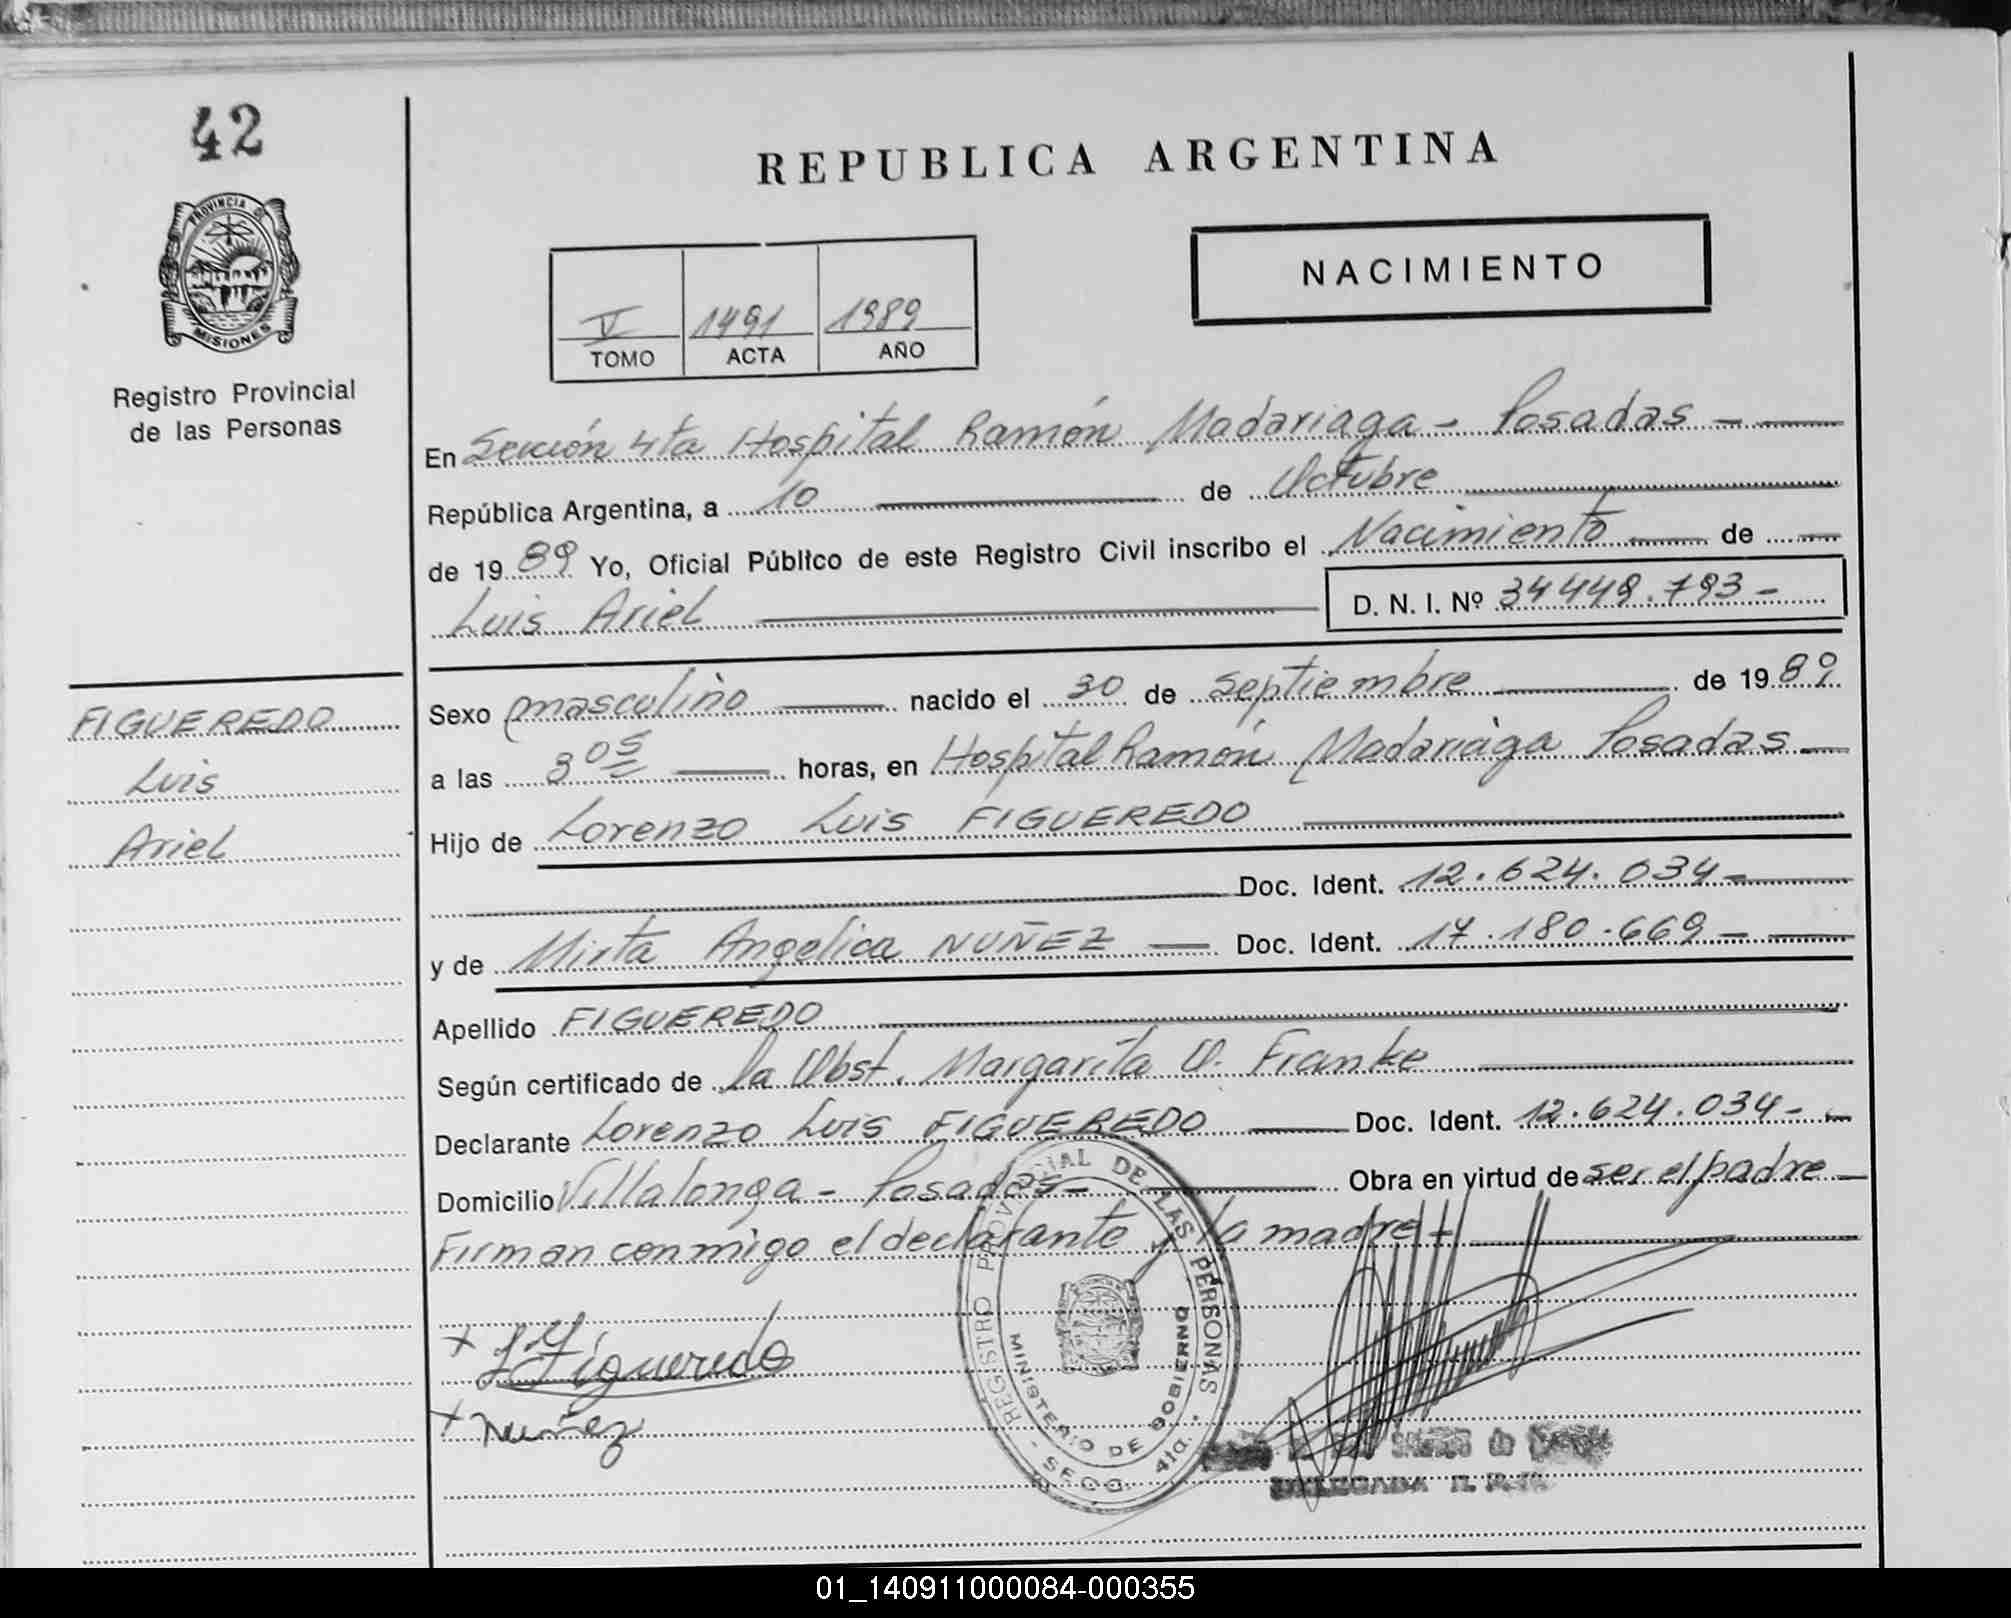 42
REPUBLICA ARGENTINA
PROVINCIA DE
MISIONES
Registro Provincial
de las Personas
NACIMIENTO
V 1491 1989
TOMO ACTA AÑO
En Sección 4ta Hospital Ramón Madariaga - Posadas -
República Argentina, a 10 de Octubre
de 1989 Yo, Oficial Público de este Registro Civil inscribo el Nacimiento de
Luis Ariel D. N. I. Nº 34449.793-
Sexo masculino nacido el 30 de septiembre de 1989
a las 3 05 horas, en Hospital Ramón Madariaga Posadas
Hijo de Lorenzo Luis FIGUEREDO
Doc. Ident. 12.624.034-
y de Mirta Angelica NUÑEZ Doc. Ident. 17.180.669-
Apellido FIGUEREDO
Según certificado de la Obst. Margarita O. Franke
Declarante Lorenzo Luis FIGUEREDO Doc. Ident. 12.624.034-
Domicilio Villalonga - Posadas - Obra en virtud de ser el padre
Firman conmigo el declarante y la madre -
FIGUEREDO
Luis
Ariel
+ L Figueredo
+ Nuñez
REGISTRO PROVINCIAL DE LAS PERSONAS
MINISTERIO DE GOBIERNO
- SECC. 4ta. -
DELEGADA R. P. P.
01_140911000084-000355